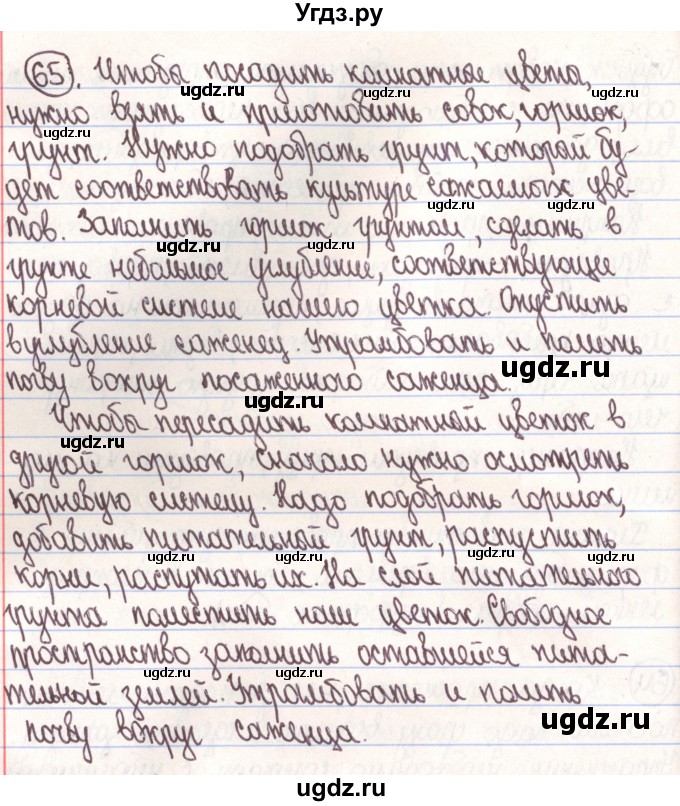 Угдз.ру
65). Чтобы посадить комнатные цвета,
нужно взять и приготовить совок, горшок,
грунт. Нужно подобрать грунт, который бу-
дет соответствовать культуре сажаемых цве-
тов. Заполнить горшок грунтом, сделать в
грунте небольшое углубление, соответствующее
корневой системе нашего цветка. Опустить
в углубление саженец. Утрамбовать и полить
почву вокруг посаженного саженца.
Чтобы пересадить комнатный цветок в
другой горшок, сначала нужно осмотреть
корневую систему. Надо подобрать горшок,
добавить питательный грунт, распустить
корни, распутать их. На слой питательного
грунта поместить наш цветок. Свободное
пространство заполнить оставшейся пита-
тельной землей. Утрамбовать и полить
почву вокруг саженца.
ugdz.ru